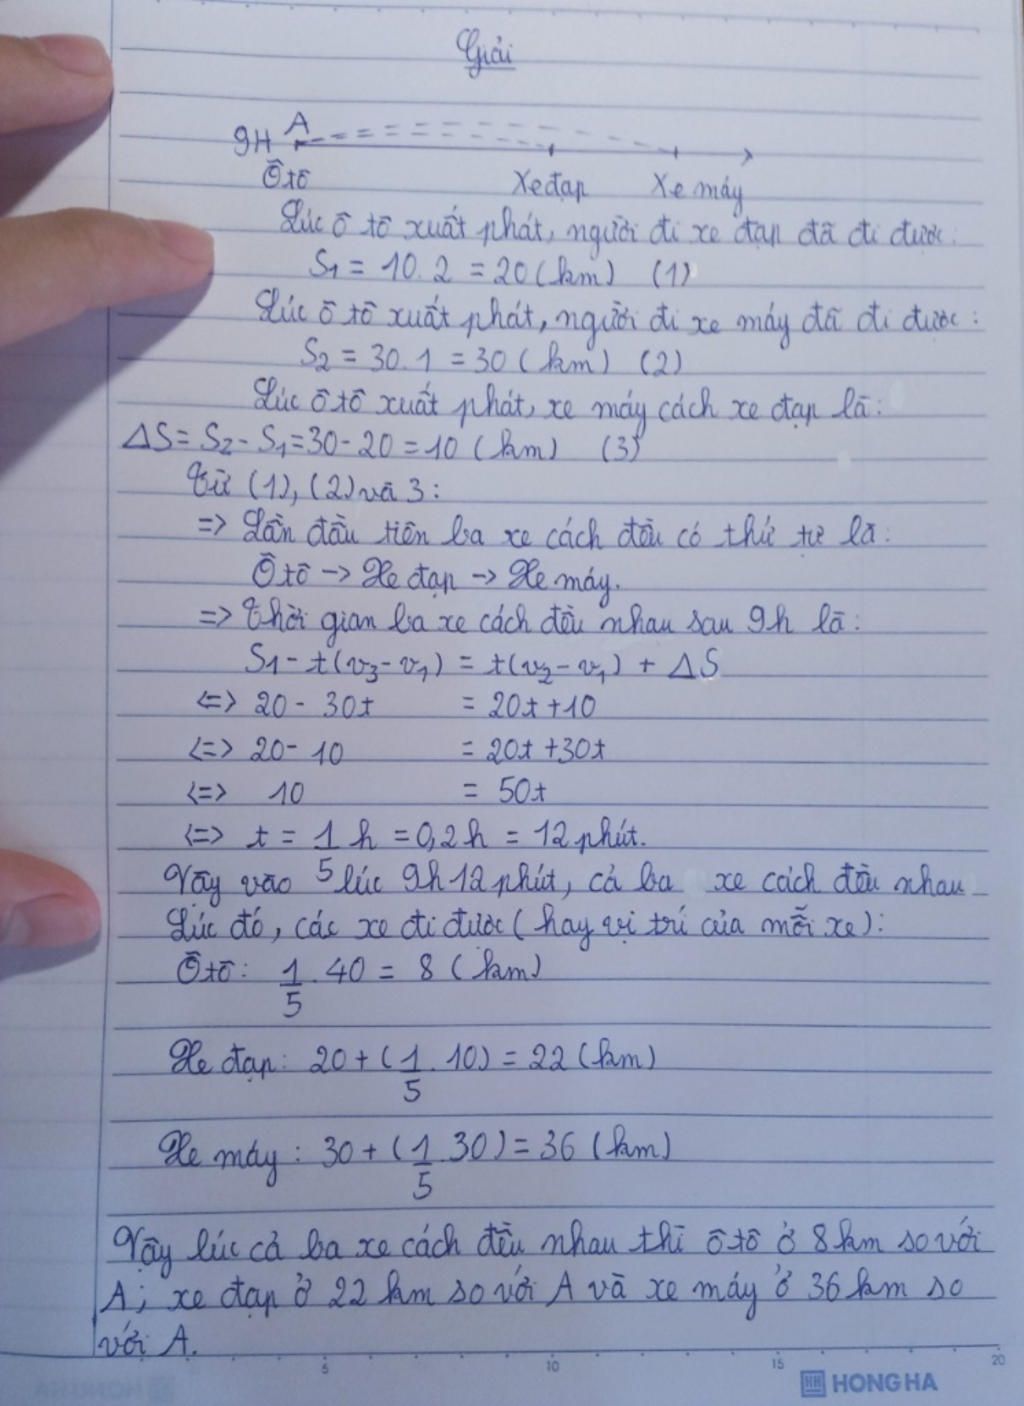 Giải
9H A
Ô tô Xe đạp Xe máy
Lúc ô tô xuất phát, người đi xe đạp đã đi được:
S₁ = 10.2 = 20 (km) (1)
Lúc ô tô xuất phát, người đi xe máy đã đi được:
S₂ = 30.1 = 30 (km) (2)
Lúc ô tô xuất phát, xe máy cách xe đạp là:
ΔS = S₂ - S₁ = 30 - 20 = 10 (km) (3)
Từ (1), (2) và 3:
=> Lần đầu tiên ba xe cách đều có thứ tự là:
Ô tô -> Xe đạp -> Xe máy.
=> Thời gian ba xe cách đều nhau sau 9h là:
S₁ - t(v₃ - v₁) = t(v₂ - v₁) + ΔS
<=> 20 - 30t = 20t + 10
<=> 20 - 10 = 20t + 30t
<=> 10 = 50t
<=> t = 1/5 h = 0,2h = 12 phút.
Vậy vào lúc 9h12 phút, cả ba xe cách đều nhau
Lúc đó, các xe đi được (hay vị trí của mỗi xe):
Ô tô: 1/5 . 40 = 8 (km)
Xe đạp: 20 + (1/5 . 10) = 22 (km)
Xe máy: 30 + (1/5 . 30) = 36 (km)
Vậy lúc cả ba xe cách đều nhau thì ô tô ở 8 km so với
A; xe đạp ở 22 km so với A và xe máy ở 36 km so
với A.
5 10 15 20
HH HONG HA